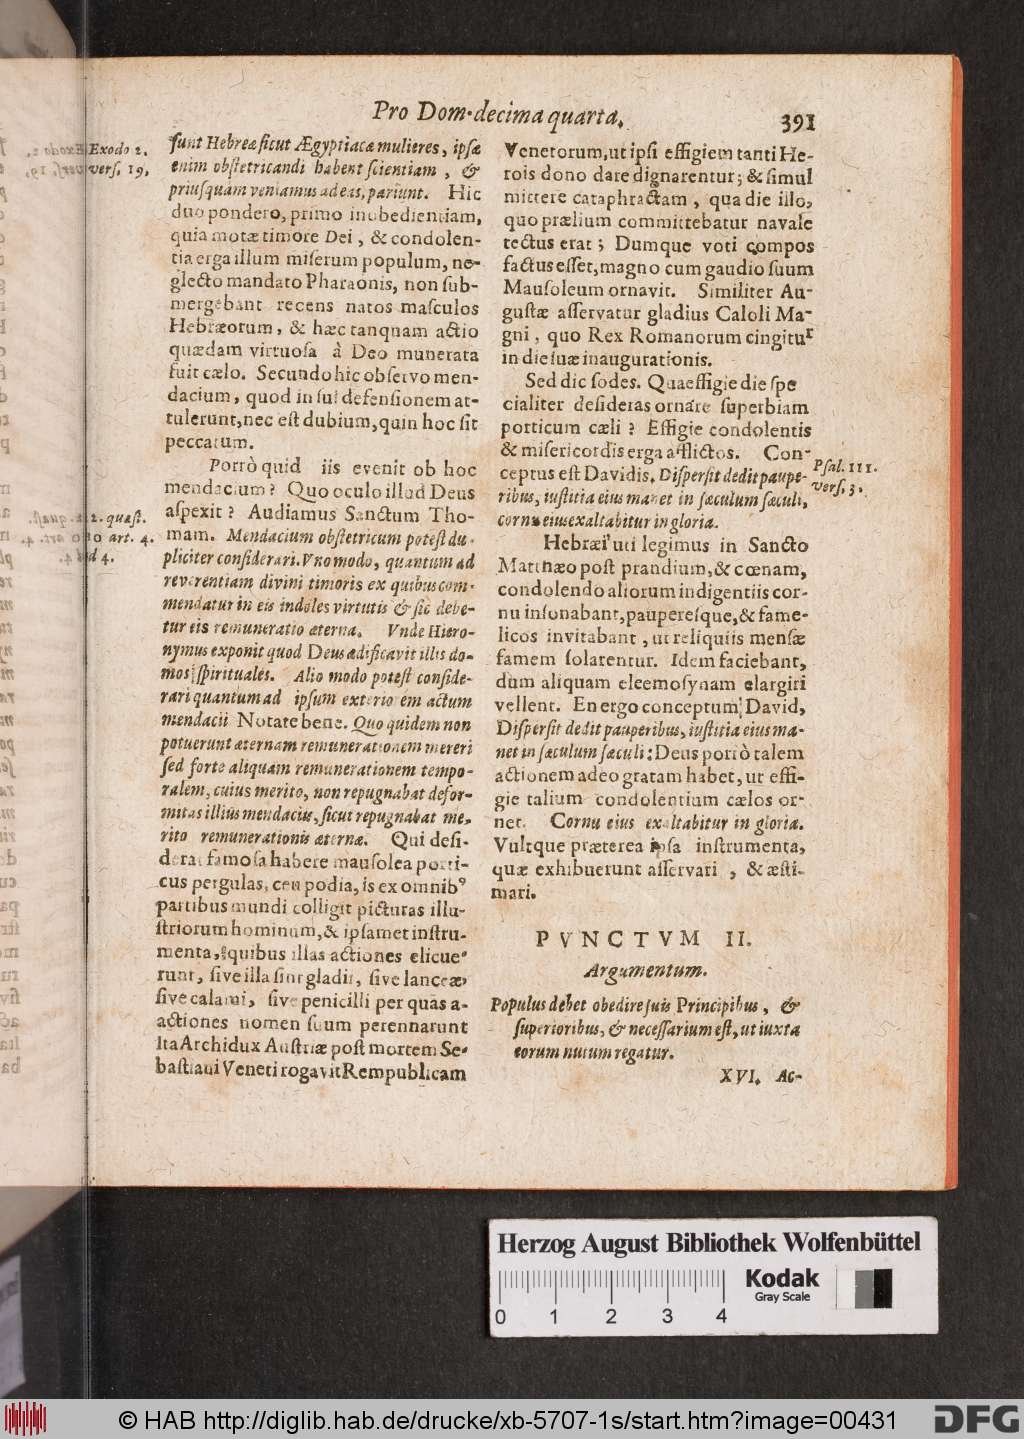 Pro Dom. decima quarta. 391
ſunt Hebreæ ſicut Ægyptiacæ mulieres, ipſæ
enim obſtetricandi habent ſcientiam, &
priuſquam veniamus ad eas, pariunt. Hic
duo pondero, primo inobedientiam,
quia motæ timore Dei, & condolen-
tia erga illum miſerum populum, ne-
glecto mandato Pharaonis, non ſub-
mergebant recens natos maſculos
Hebræorum, & hæc tanquam actio
quædam virtuoſa à Deo munerata
fuit cælo. Secundo hic obſervo men-
dacium, quod in ſui defenſionem at-
tulerunt, nec eſt dubium, quin hoc ſit
peccatum.
Porrò quid iis evenit ob hoc
mendacium? Quo oculo illud Deus
aſpexit? Audiamus Sanctum Tho-
mam. Mendacium obſtetricum poteſt du-
pliciter conſiderari. Vno modo, quantum ad
reverentiam divini timoris ex quibus com-
mendatur in eis indoles virtutis & ſic debe-
tur eis remuneratio æterna. Vnde Hiero-
nymus exponit quod Deus ædificavit illis do-
mos ſpirituales. Alio modo poteſt conſide-
rari quantum ad ipſum exteriorem actum
mendacii Notate bene. Quo quidem non
potuerunt æternam remunerationem mereri
ſed forte aliquam remunerationem tempo-
ralem, cuius merito, non repugnabat defor-
mitas illius mendacii, ſicut repugnabat me-
rito remunerationis æternæ. Qui deſi-
derat famoſa habere mauſolea porti-
cus pergulas, ceu podia, is ex omnibꝰ
partibus mundi colligit picturas illu-
ſtriorum hominum, & ipſamet inſtru-
menta, quibus illas actiones elicue-
runt, ſive illa ſint gladii, ſive lanceæ,
ſive calami, ſive penicilli per quas a-
actiones nomen ſuum perennarunt
Ita Archidux Auſtriæ poſt mortem Se-
baſtiani Veneti rogavit Rempublicam
Exodo 2.
verſ. 19,
2. quæſt.
0 art. 4.
d 4.
Venetorum, ut ipſi effigiem tanti He-
rois dono dare dignarentur; & ſimul
mittere cataphractam, qua die illo,
quo prælium committebatur navale
tectus erat; Dumque voti compos
factus eſſet, magno cum gaudio ſuum
Mauſoleum ornavit. Similiter Au-
guſtæ aſſervatur gladius Caloli Ma-
gni, quo Rex Romanorum cingitur
in die ſuæ inaugurationis.
Sed dic ſodes. Qua effigie die ſpe
cialiter deſideras ornare ſuperbiam
porticum cæli? Effigie condolentis
& miſericordis erga afflictos. Con-
ceptus eſt Davidis. Diſperſit dedit paupe-
ribus, iuſtitia eius manet in ſæculum ſæculi,
cornu eius exaltabitur in gloria.
Hebræi uti legimus in Sancto
Matthæo poſt prandium, & cœnam,
condolendo aliorum indigentiis cor-
nu inſonabant, pauperesque, & fame-
licos invitabant, ut reliquiis menſæ
famem ſolarentur. Idem faciebant,
dum aliquam eleemoſynam elargiri
vellent. En ergo conceptum David,
Diſperſit dedit pauperibus, iuſtitia eius ma-
net in ſæculum ſæculi: Deus porrò talem
actionem adeo gratam habet, ut effi-
gie talium condolentium cælos or-
net. Cornu eius exaltabitur in gloria.
Vultque præterea ipſa inſtrumenta,
quæ exhibuerunt aſſervari, & æſti-
mari.
Pſal. 111.
verſ. 3.
PVNCTVM II.
Argumentum.
Populus debet obedire ſuis Principibus, &
ſuperioribus, & neceſſarium eſt, ut iuxta
eorum nutum regatur.
XVI. Ac-
Herzog August Bibliothek Wolfenbüttel
Kodak
Gray Scale
0 1 2 3 4
© HAB http://diglib.hab.de/drucke/xb-5707-1s/start.htm?image=00431
DFG